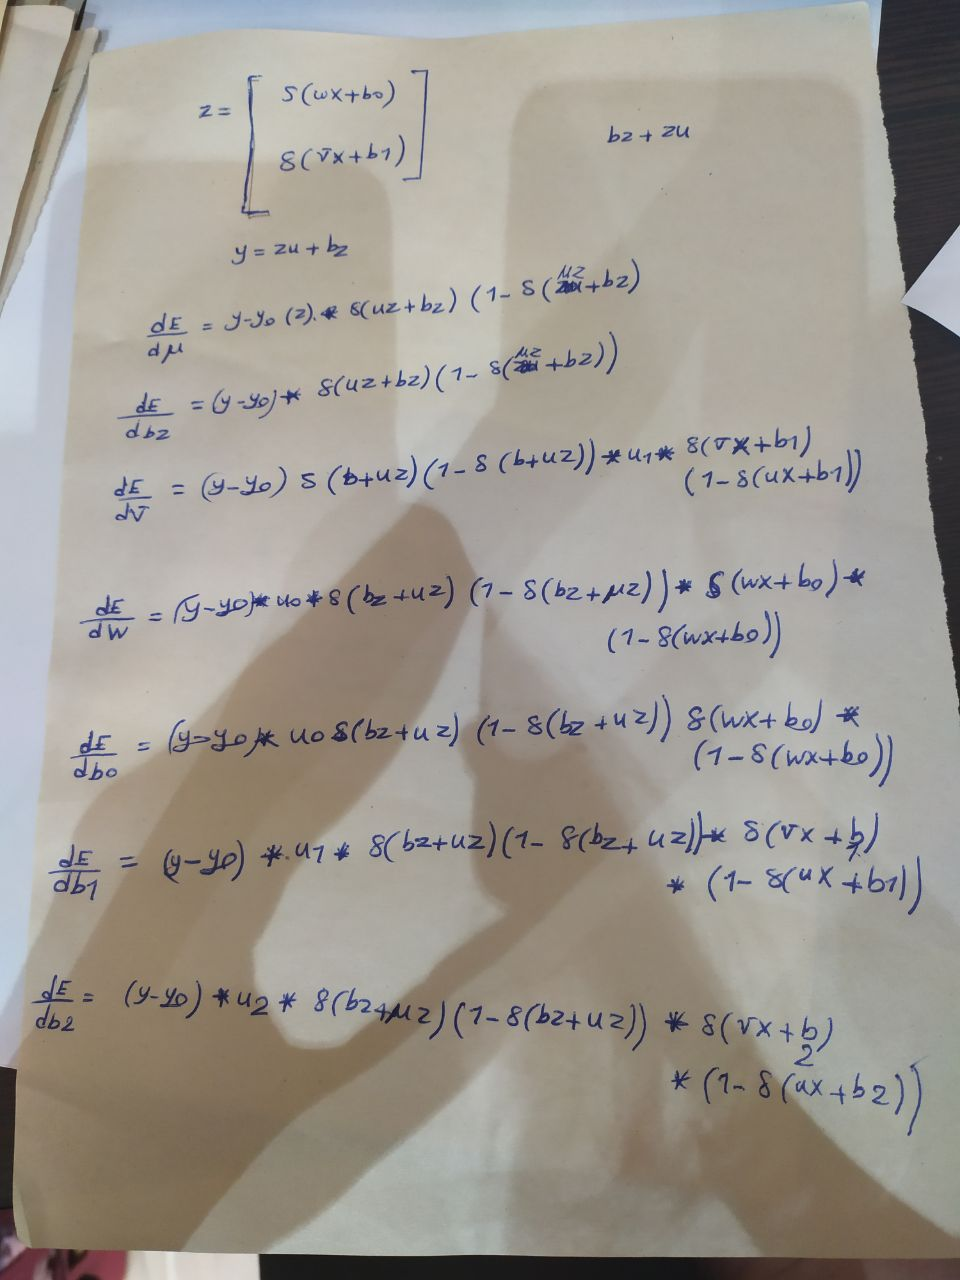 z = [ δ(wx+b0)
δ(vx+b1) ]
bz + zu
y = zu + bz
dE/dμ = y-y0 (z) * δ(uz+bz) (1- δ(μz+bz)
dE/dbz = (y-y0) * δ(uz+bz)(1- δ(μz+bz))
dE/dv = (y-y0) δ(b+uz)(1-δ(b+uz)) * u1 * δ(vx+b1)
(1-δ(ux+b1))
dE/dw = (y-y0) * u0 * δ(bz+uz) (1-δ(bz+μz)) * δ(wx+b0) *
(1-δ(wx+b0))
dE/db0 = (y-y0) * u0 δ(bz+uz) (1-δ(bz+uz)) δ(wx+b0) *
(1-δ(wx+b0))
dE/db1 = (y-y0) * u1 * δ(bz+uz)(1- δ(bz+uz)) * δ(vx+b1)
* (1-δ(ux+b1))
dE/db2 = (y-y0) * u2 * δ(bz+μz)(1-δ(bz+uz)) * δ(vx+b2)
* (1-δ(ux+bz))